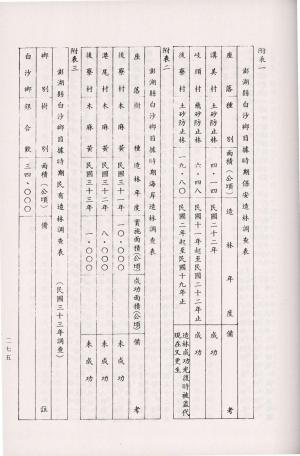 附表一
澎湖縣白沙鄉日據時期保安造林調查表
座落 種別 面積(公頃) 造林年度 備考
溝美村 土砂防止林 四・一四 民國二十二年 成功
岐頭村 飛砂防止林 六・四八 民國十一年起至民國二十二年止 成功
後寮村 土砂防止林 一九・八〇 民國二年起至民國十九年止 造林成功光復時被盜代現在又更生
附表二
澎湖縣白沙鄉日據時期海岸造林調查表
座落 樹種 造林年度 實施面積(公頃) 成功面積(公頃) 備考
後寮村 木麻黃 民國三十一年 一〇・〇〇〇 未成功
港尾村 木麻黃 民國三十二年 八・〇〇〇 未成功
後寮村 木麻黃 民國三十三年 一・〇〇〇 未成功
附表三
澎湖縣白沙鄉日據時期民有造林調查表 (民國三十三年調查)
鄉別 樹別 面積(公頃) 備註
白沙鄉 銀合歡 三四・〇〇〇
二七五